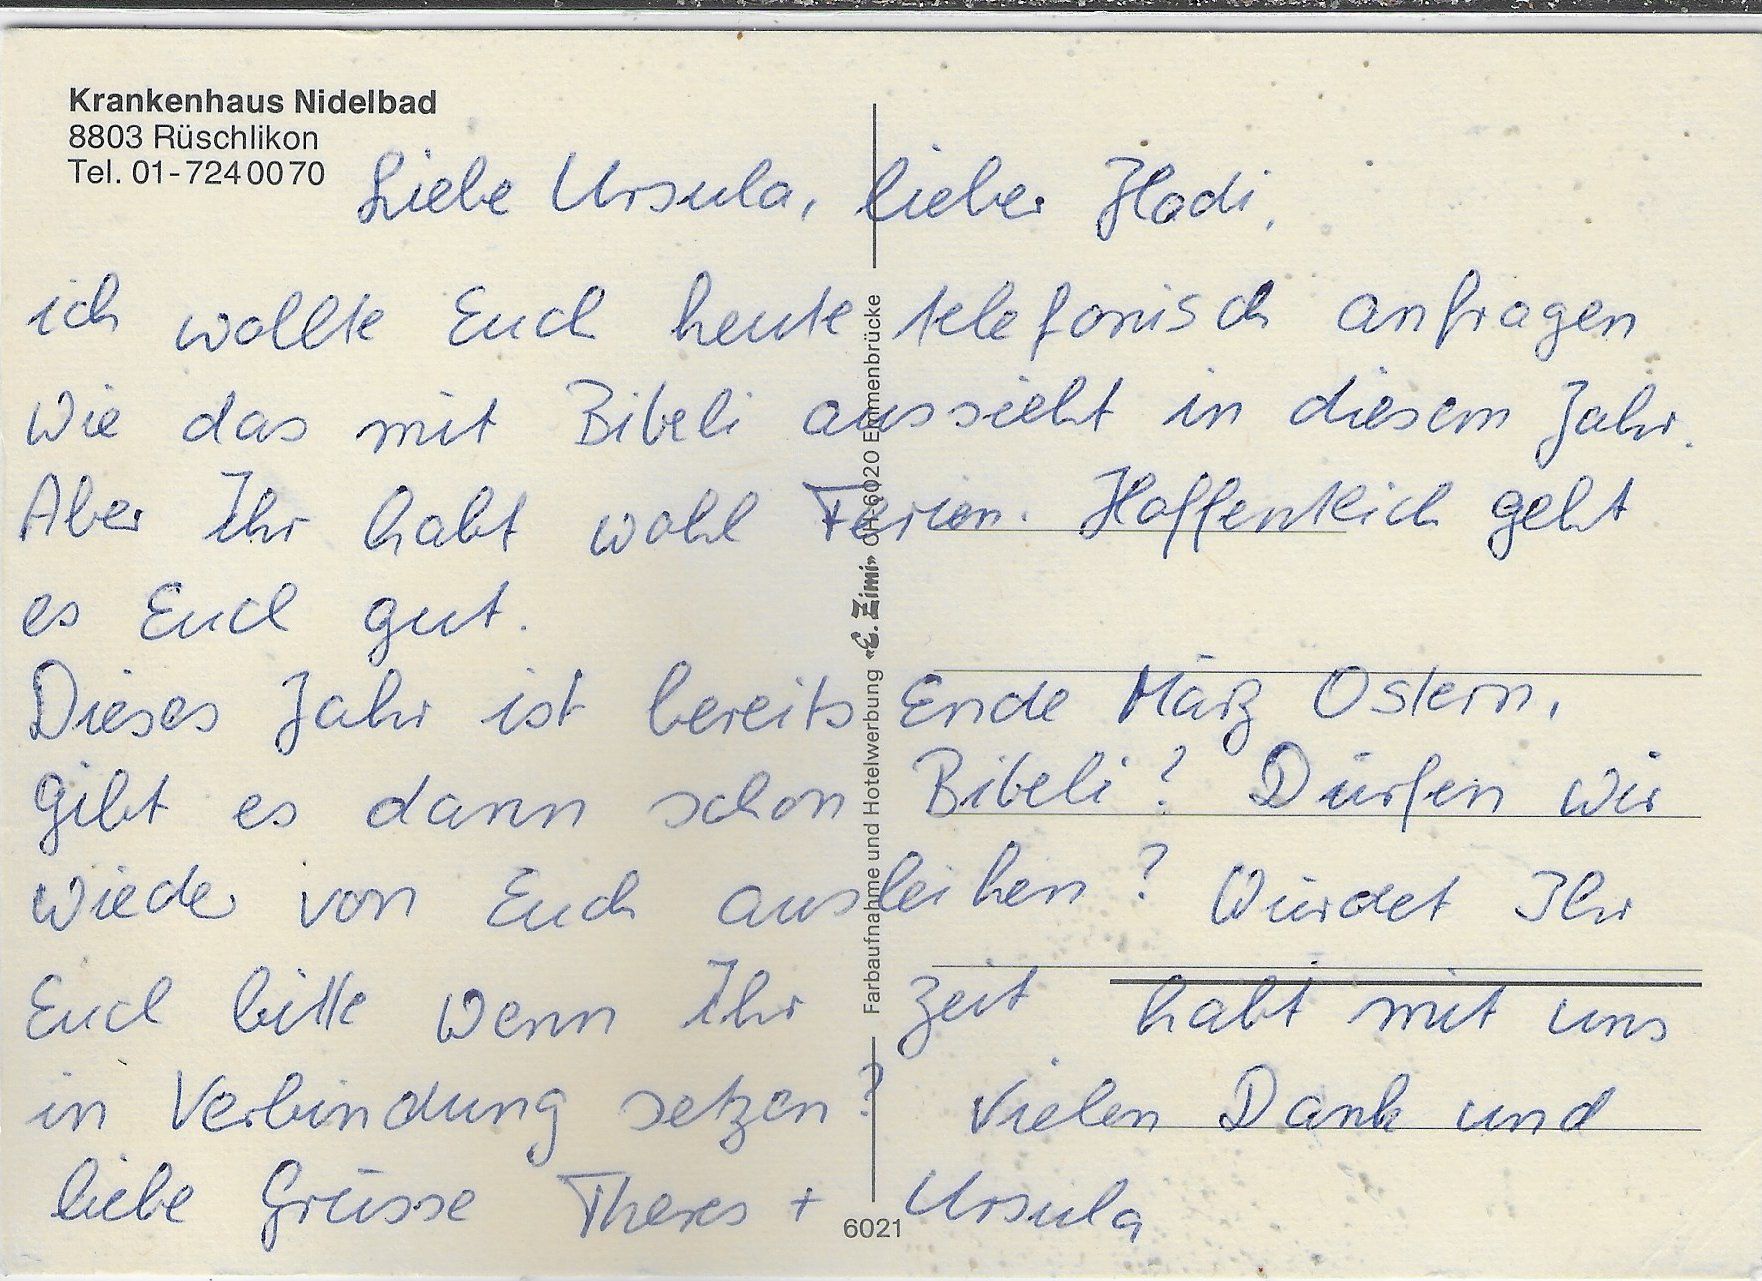 Krankenhaus Nidelbad
8803 Rüschlikon
Tel. 01-7240070
Liebe Ursula, lieber Hadi,
ich wollte Euch heute telefonisch anfragen
wie das mit Bibeli aussieht in diesem Jahr.
Aber Ihr habt wohl Ferien. Hoffentlich geht
es Euch gut.
Dieses Jahr ist bereits Ende März Ostern,
gibt es dann schon Bibeli? Dürfen wir
wieder von Euch ausleihen? Würdet Ihr
Euch bitte wenn Ihr Zeit habt mit uns
in Verbindung setzen? Vielen Dank und
liebe Grüsse Theres + Ursula
Farbaufnahme und Hotelwerbung «E. Zimi» CH-6020 Emmenbrücke
6021